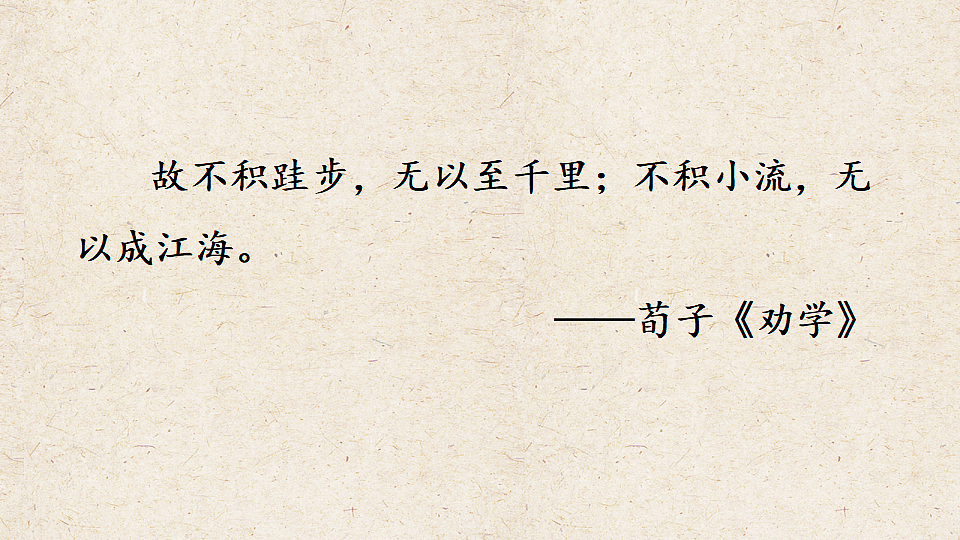 故不积跬步，无以至千里；不积小流，无
以成江海。
——荀子《劝学》